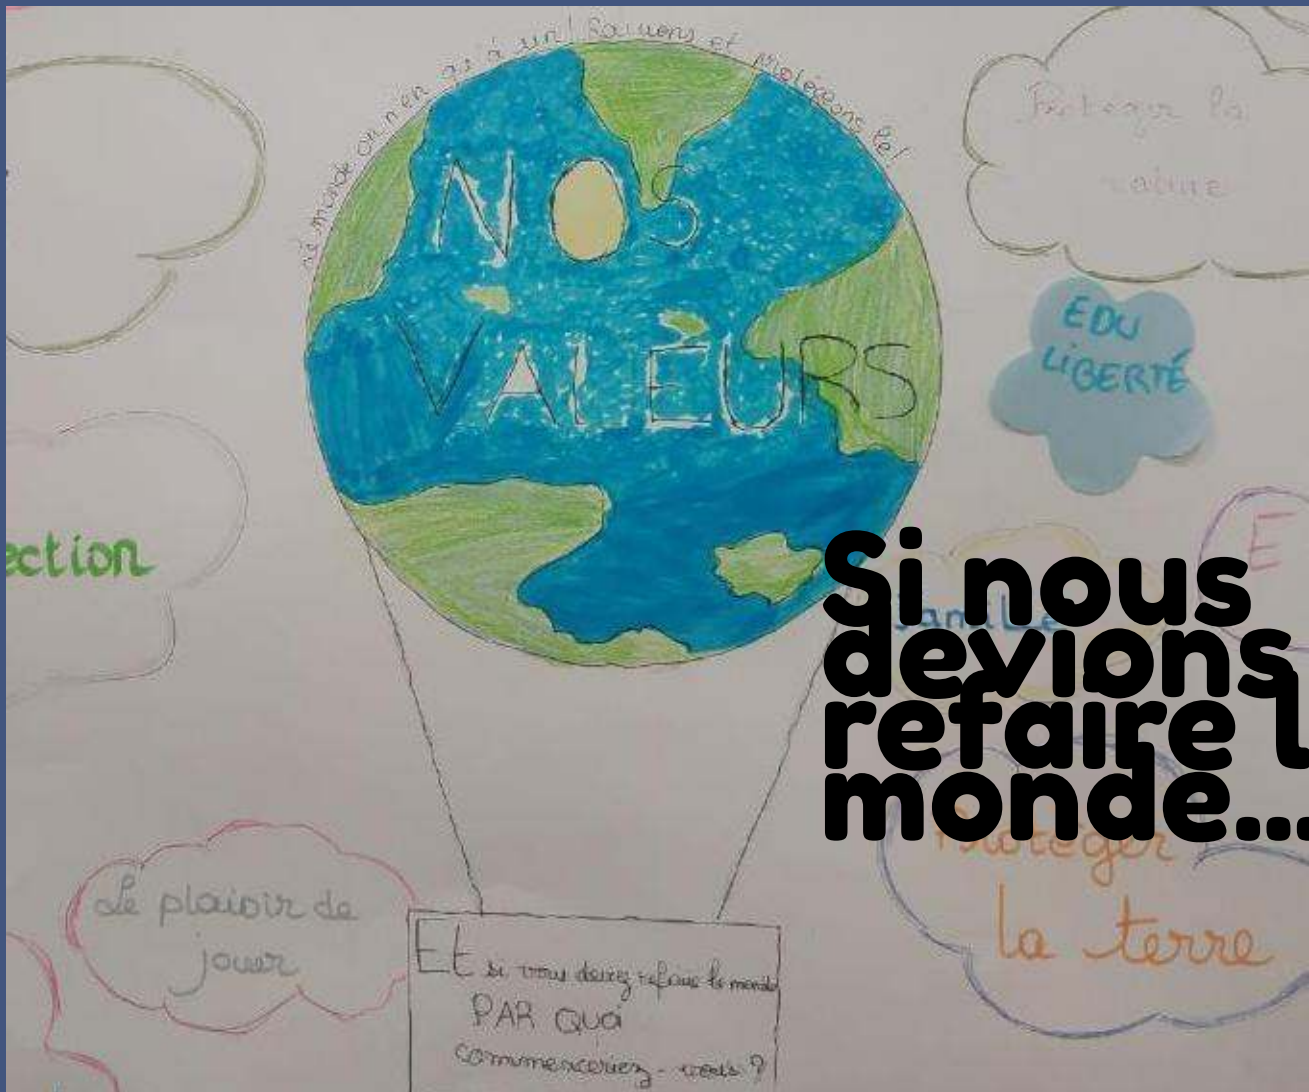 monde on n'en a qu'à un! Sauvons et protégeons le!
Protéger la
nature
NOS
VALEURS
EDU
LIBERTÉ
ection
E
Famille
Si nous
devions
refaire l
monde...
Protéger
la terre
Le plaisir de
jouer
Et si vous deviez refaire le monde
PAR QUOI
commenceriez-vous?